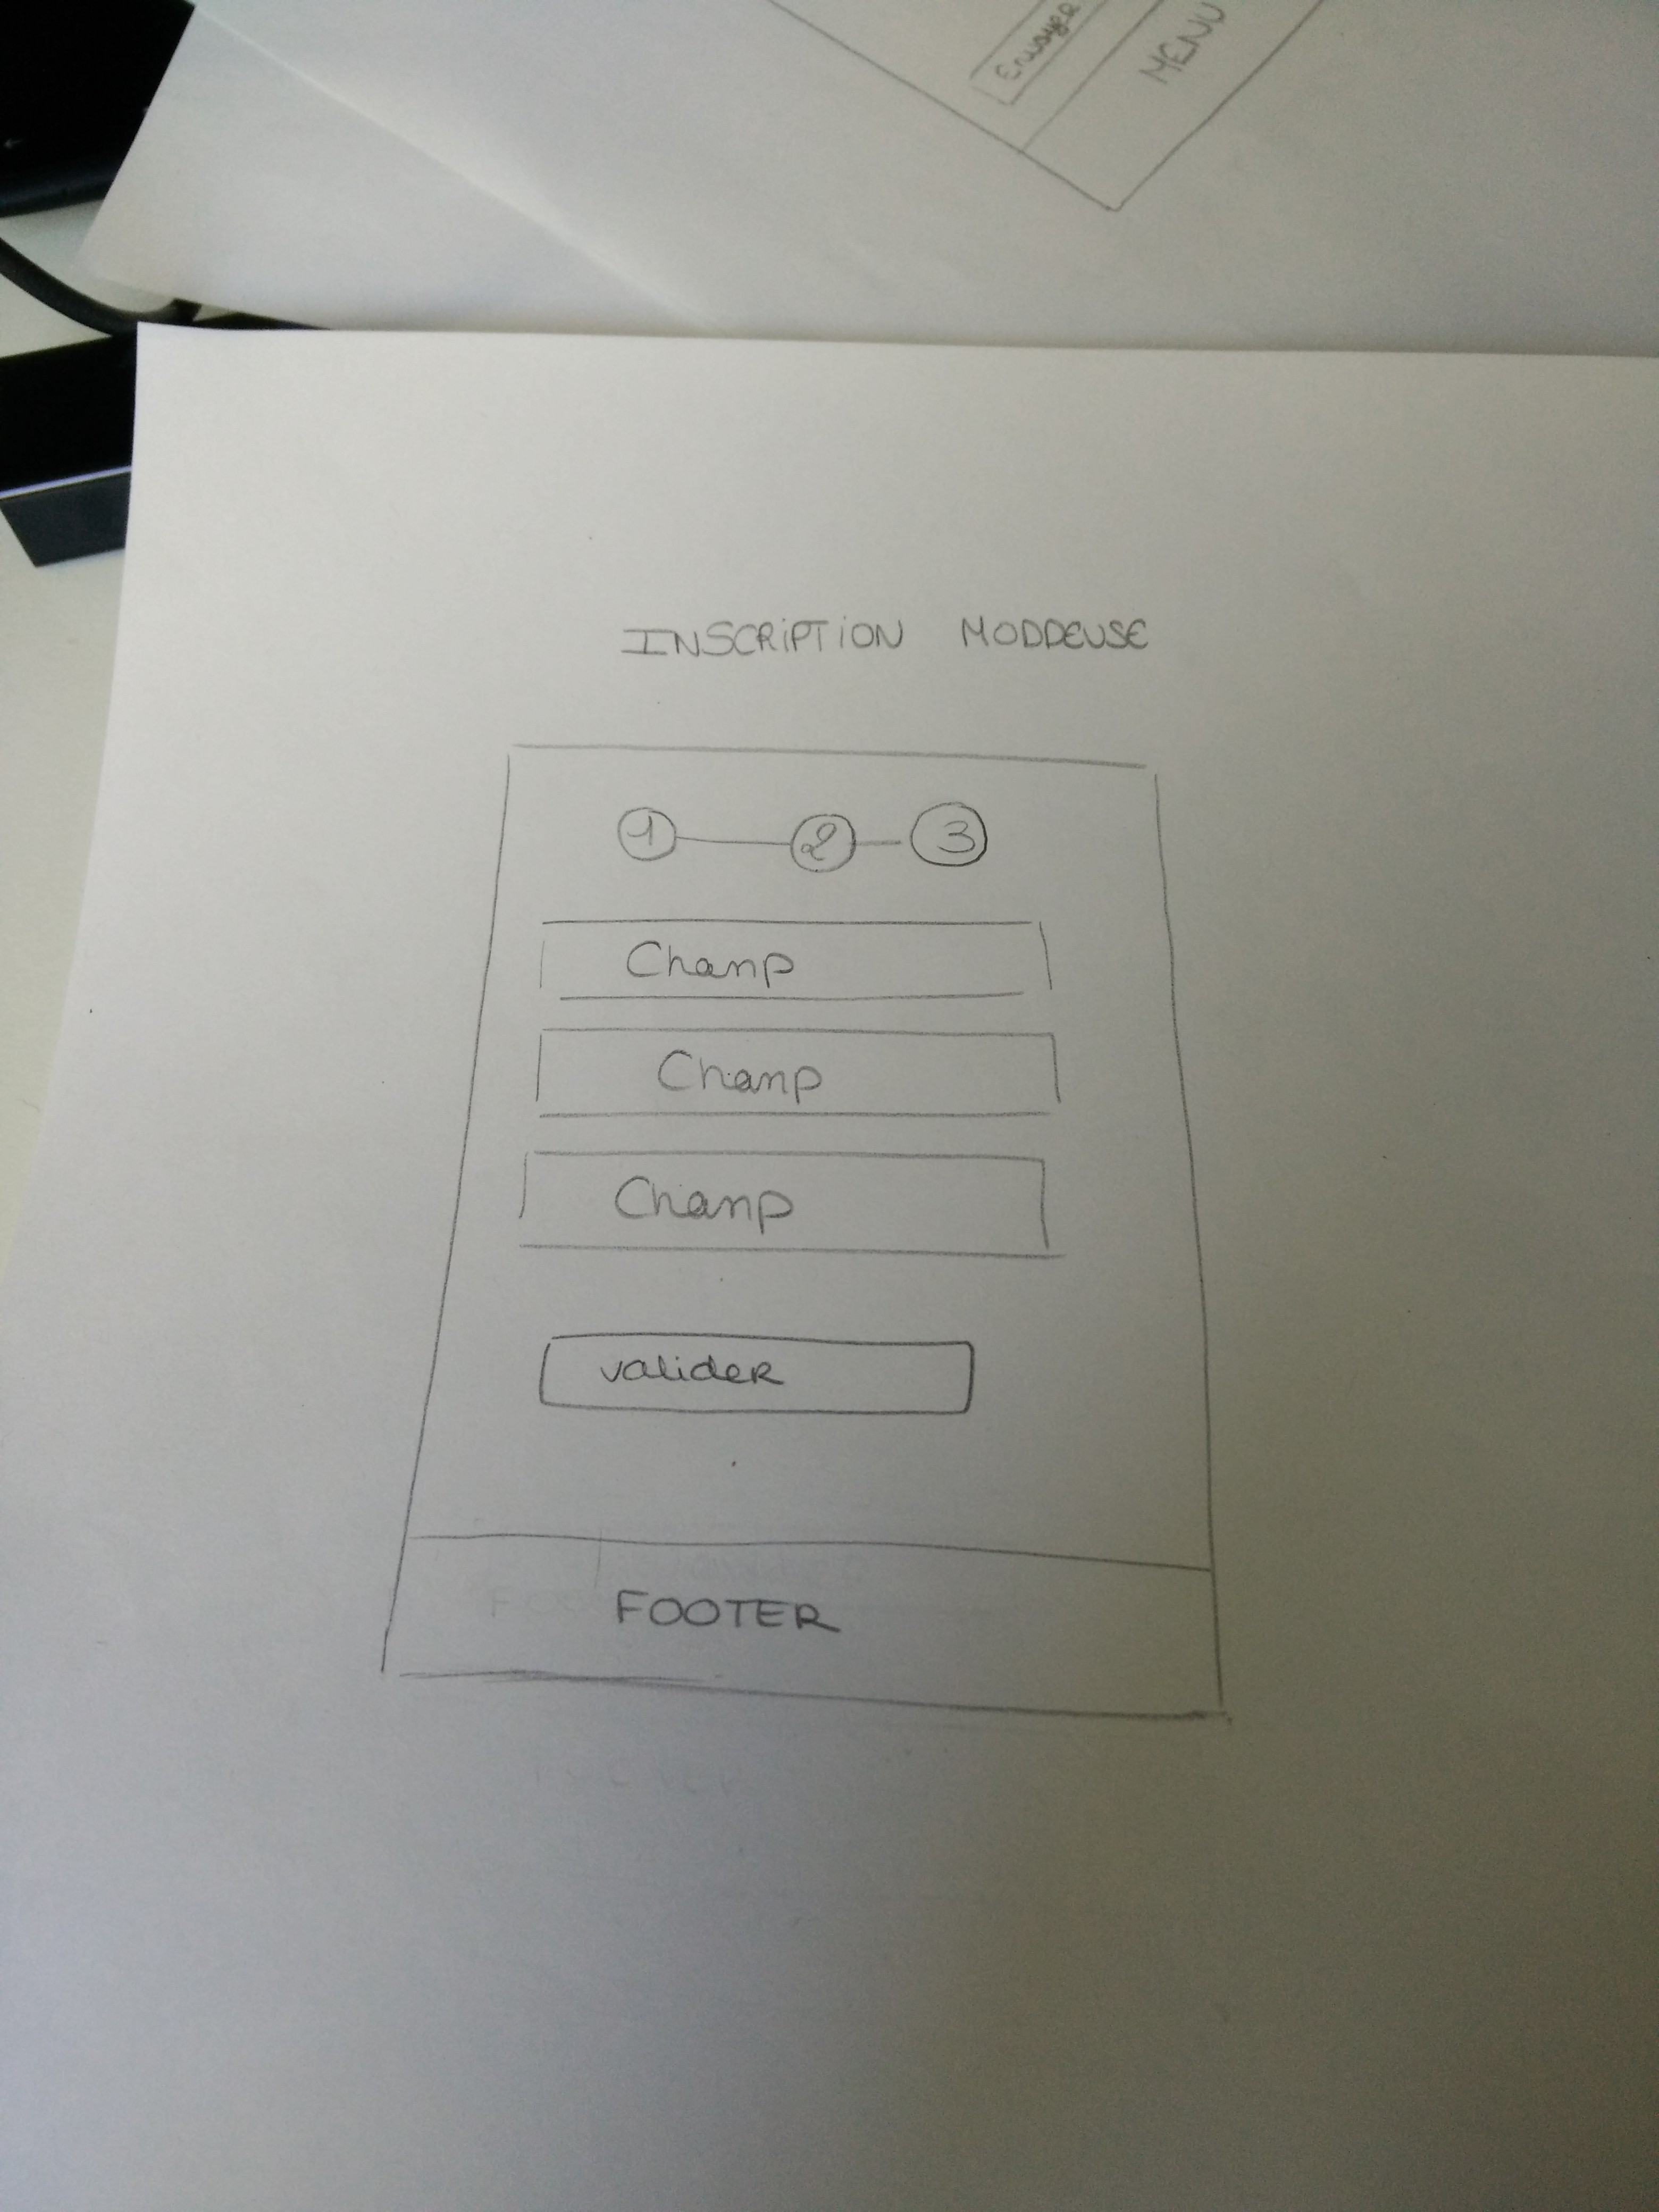 Envoyer
MENU
INSCRIPTION MODDEUSE
1 2 3
Champ
Champ
Champ
valider
FOOTER